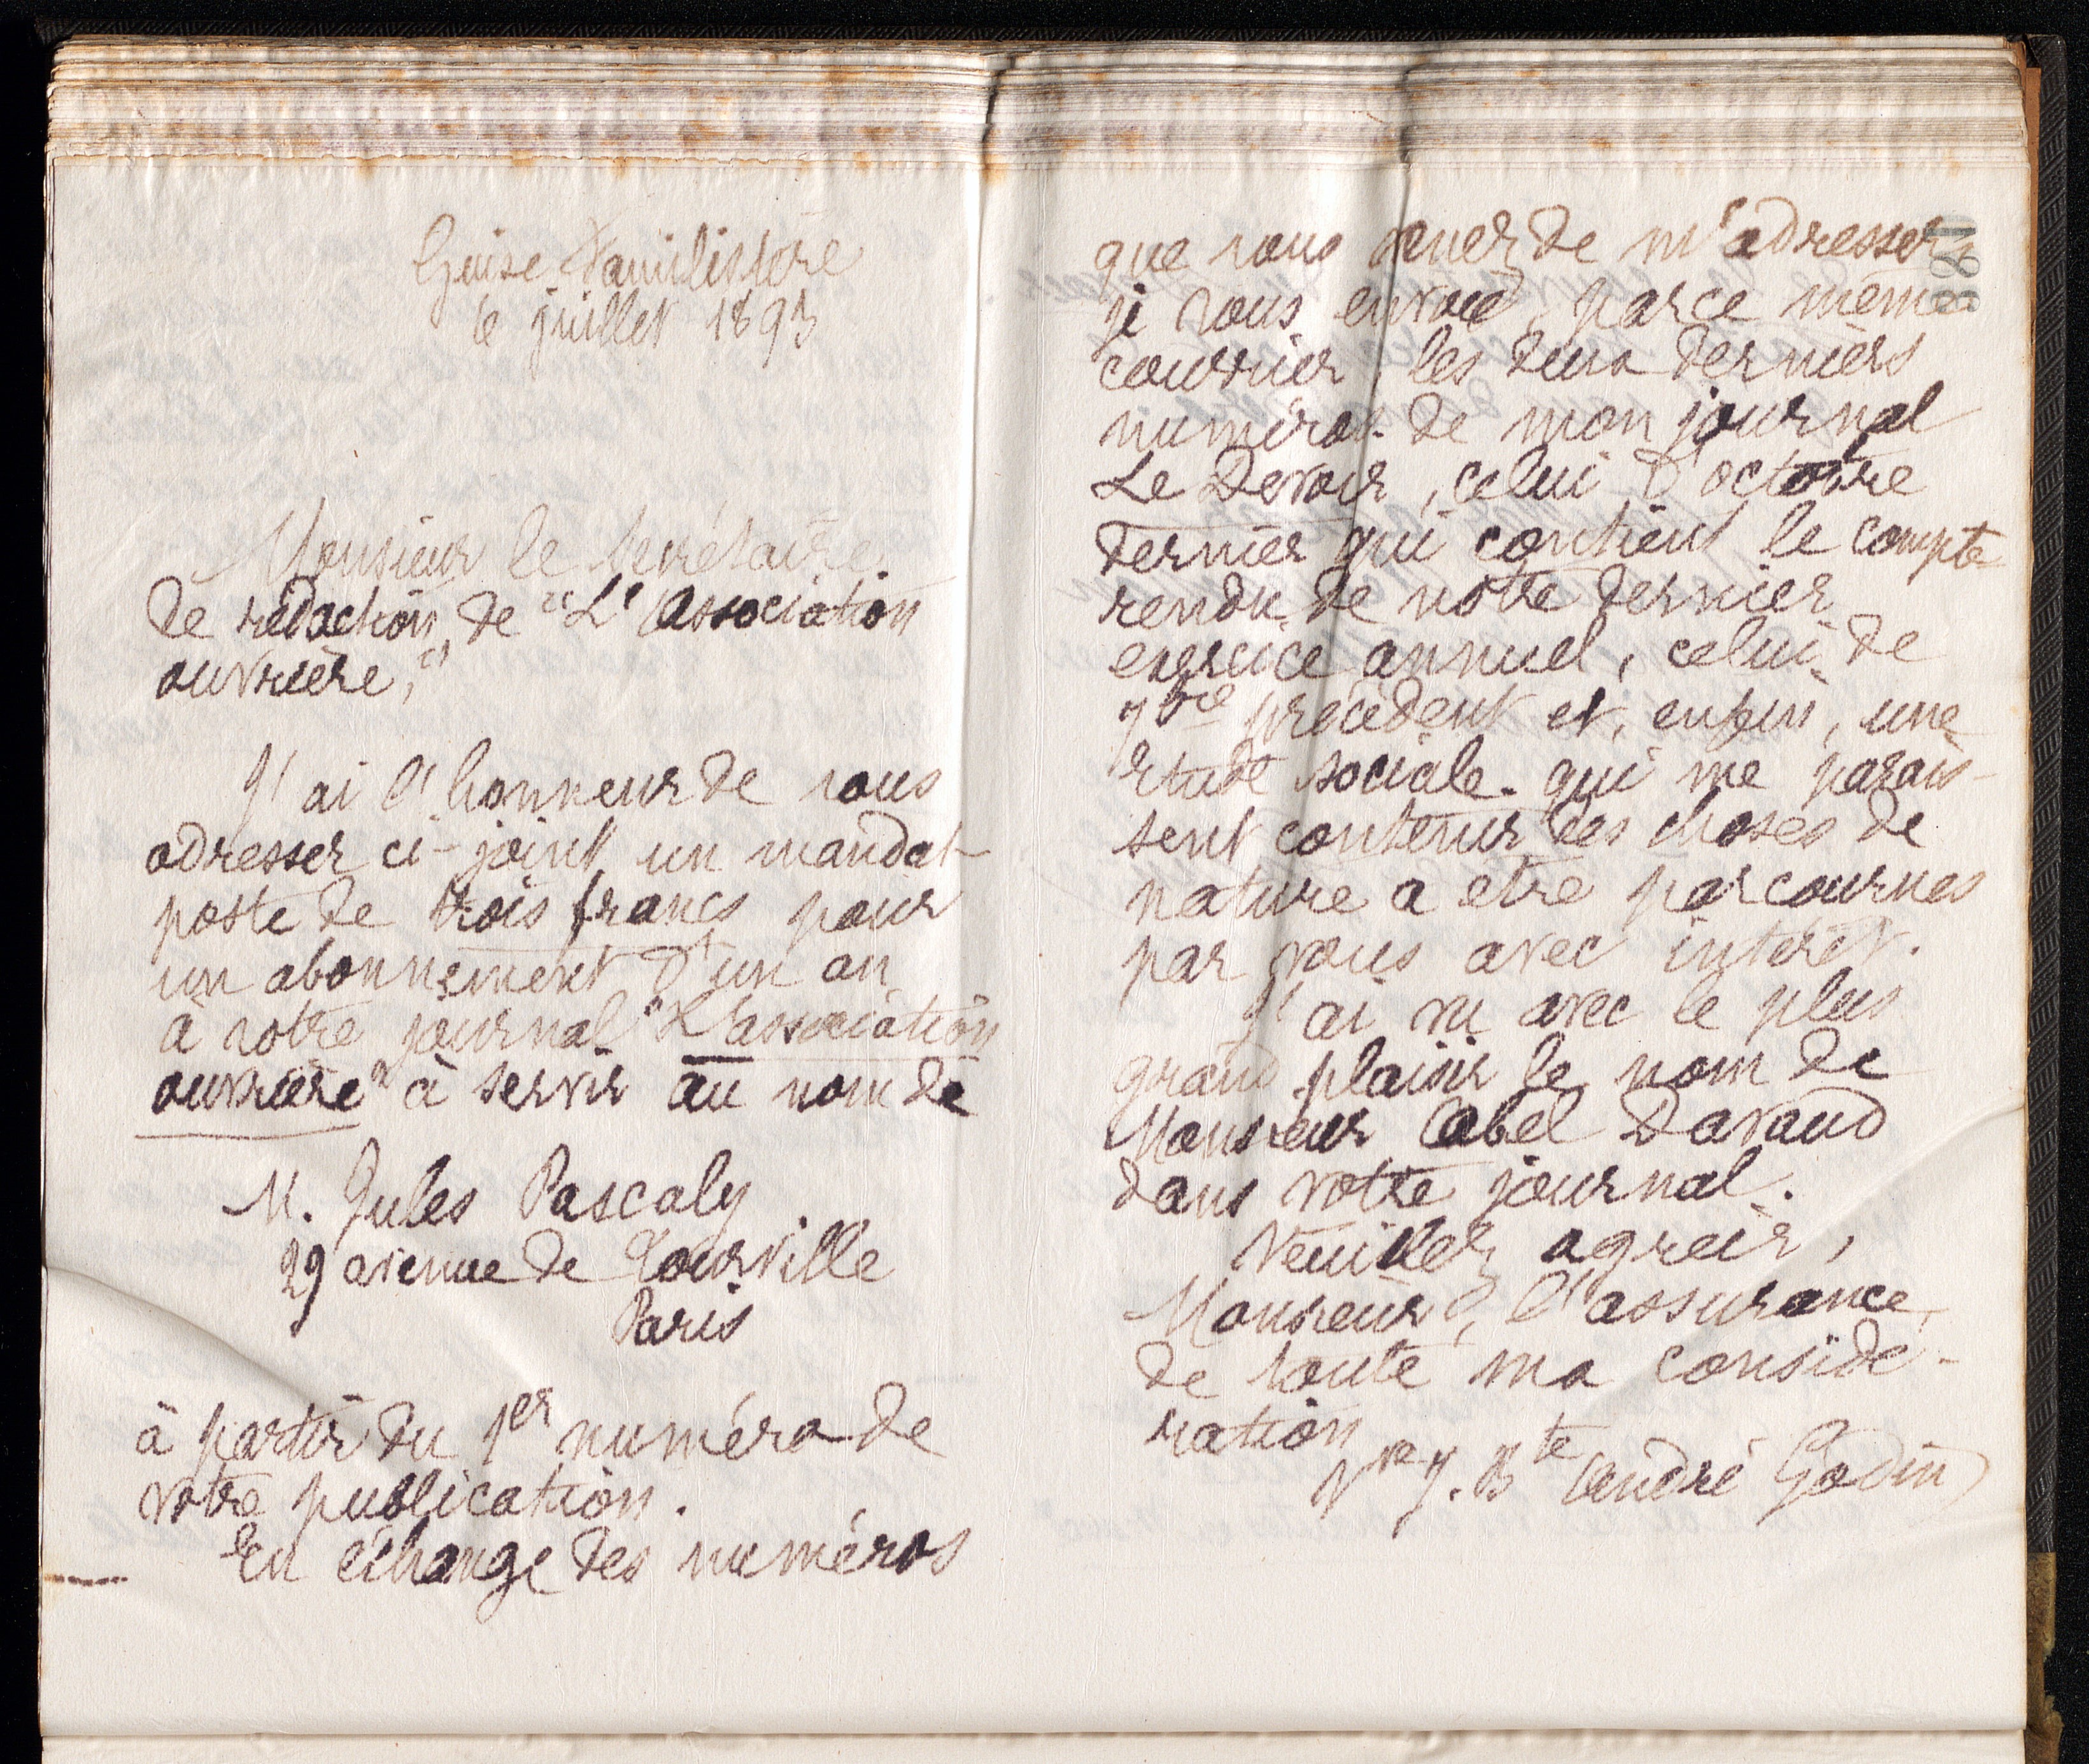 Guise Familistère
6 juillet 1893
Monsieur le Secrétaire
de rédaction de "L'Association
ouvrière,"
J'ai l'honneur de vous
adresser ci-joint un mandat-
poste de trois francs pour
un abonnement d'un an
à votre journal "L'association
ouvrière" à servir au nom de
M. Jules Pascaly
29 avenue de Tourville
Paris
à partir du 1er numéro de
votre publication.
En échange des numéros
que vous venez de m'adresser
je vous envoie, par ce même
courrier, les deux derniers
numéros de mon journal
Le Devoir, celui d'octobre
dernier qui contient le compte-
rendu de notre dernier
exercice annuel, celui de
7bre précédent et, enfin, une
étude sociale qui me parais-
sent contenir des choses de
nature a etre parcourues
par vous avec intérêt.
J'ai vu avec le plus
grand plaisir le nom de
Monsieur Abel Davaud
dans votre journal.
Veuillez agréer,
Monsieur, l'assurance
de toute ma considé-
ration
Vve J. Bte André Godin